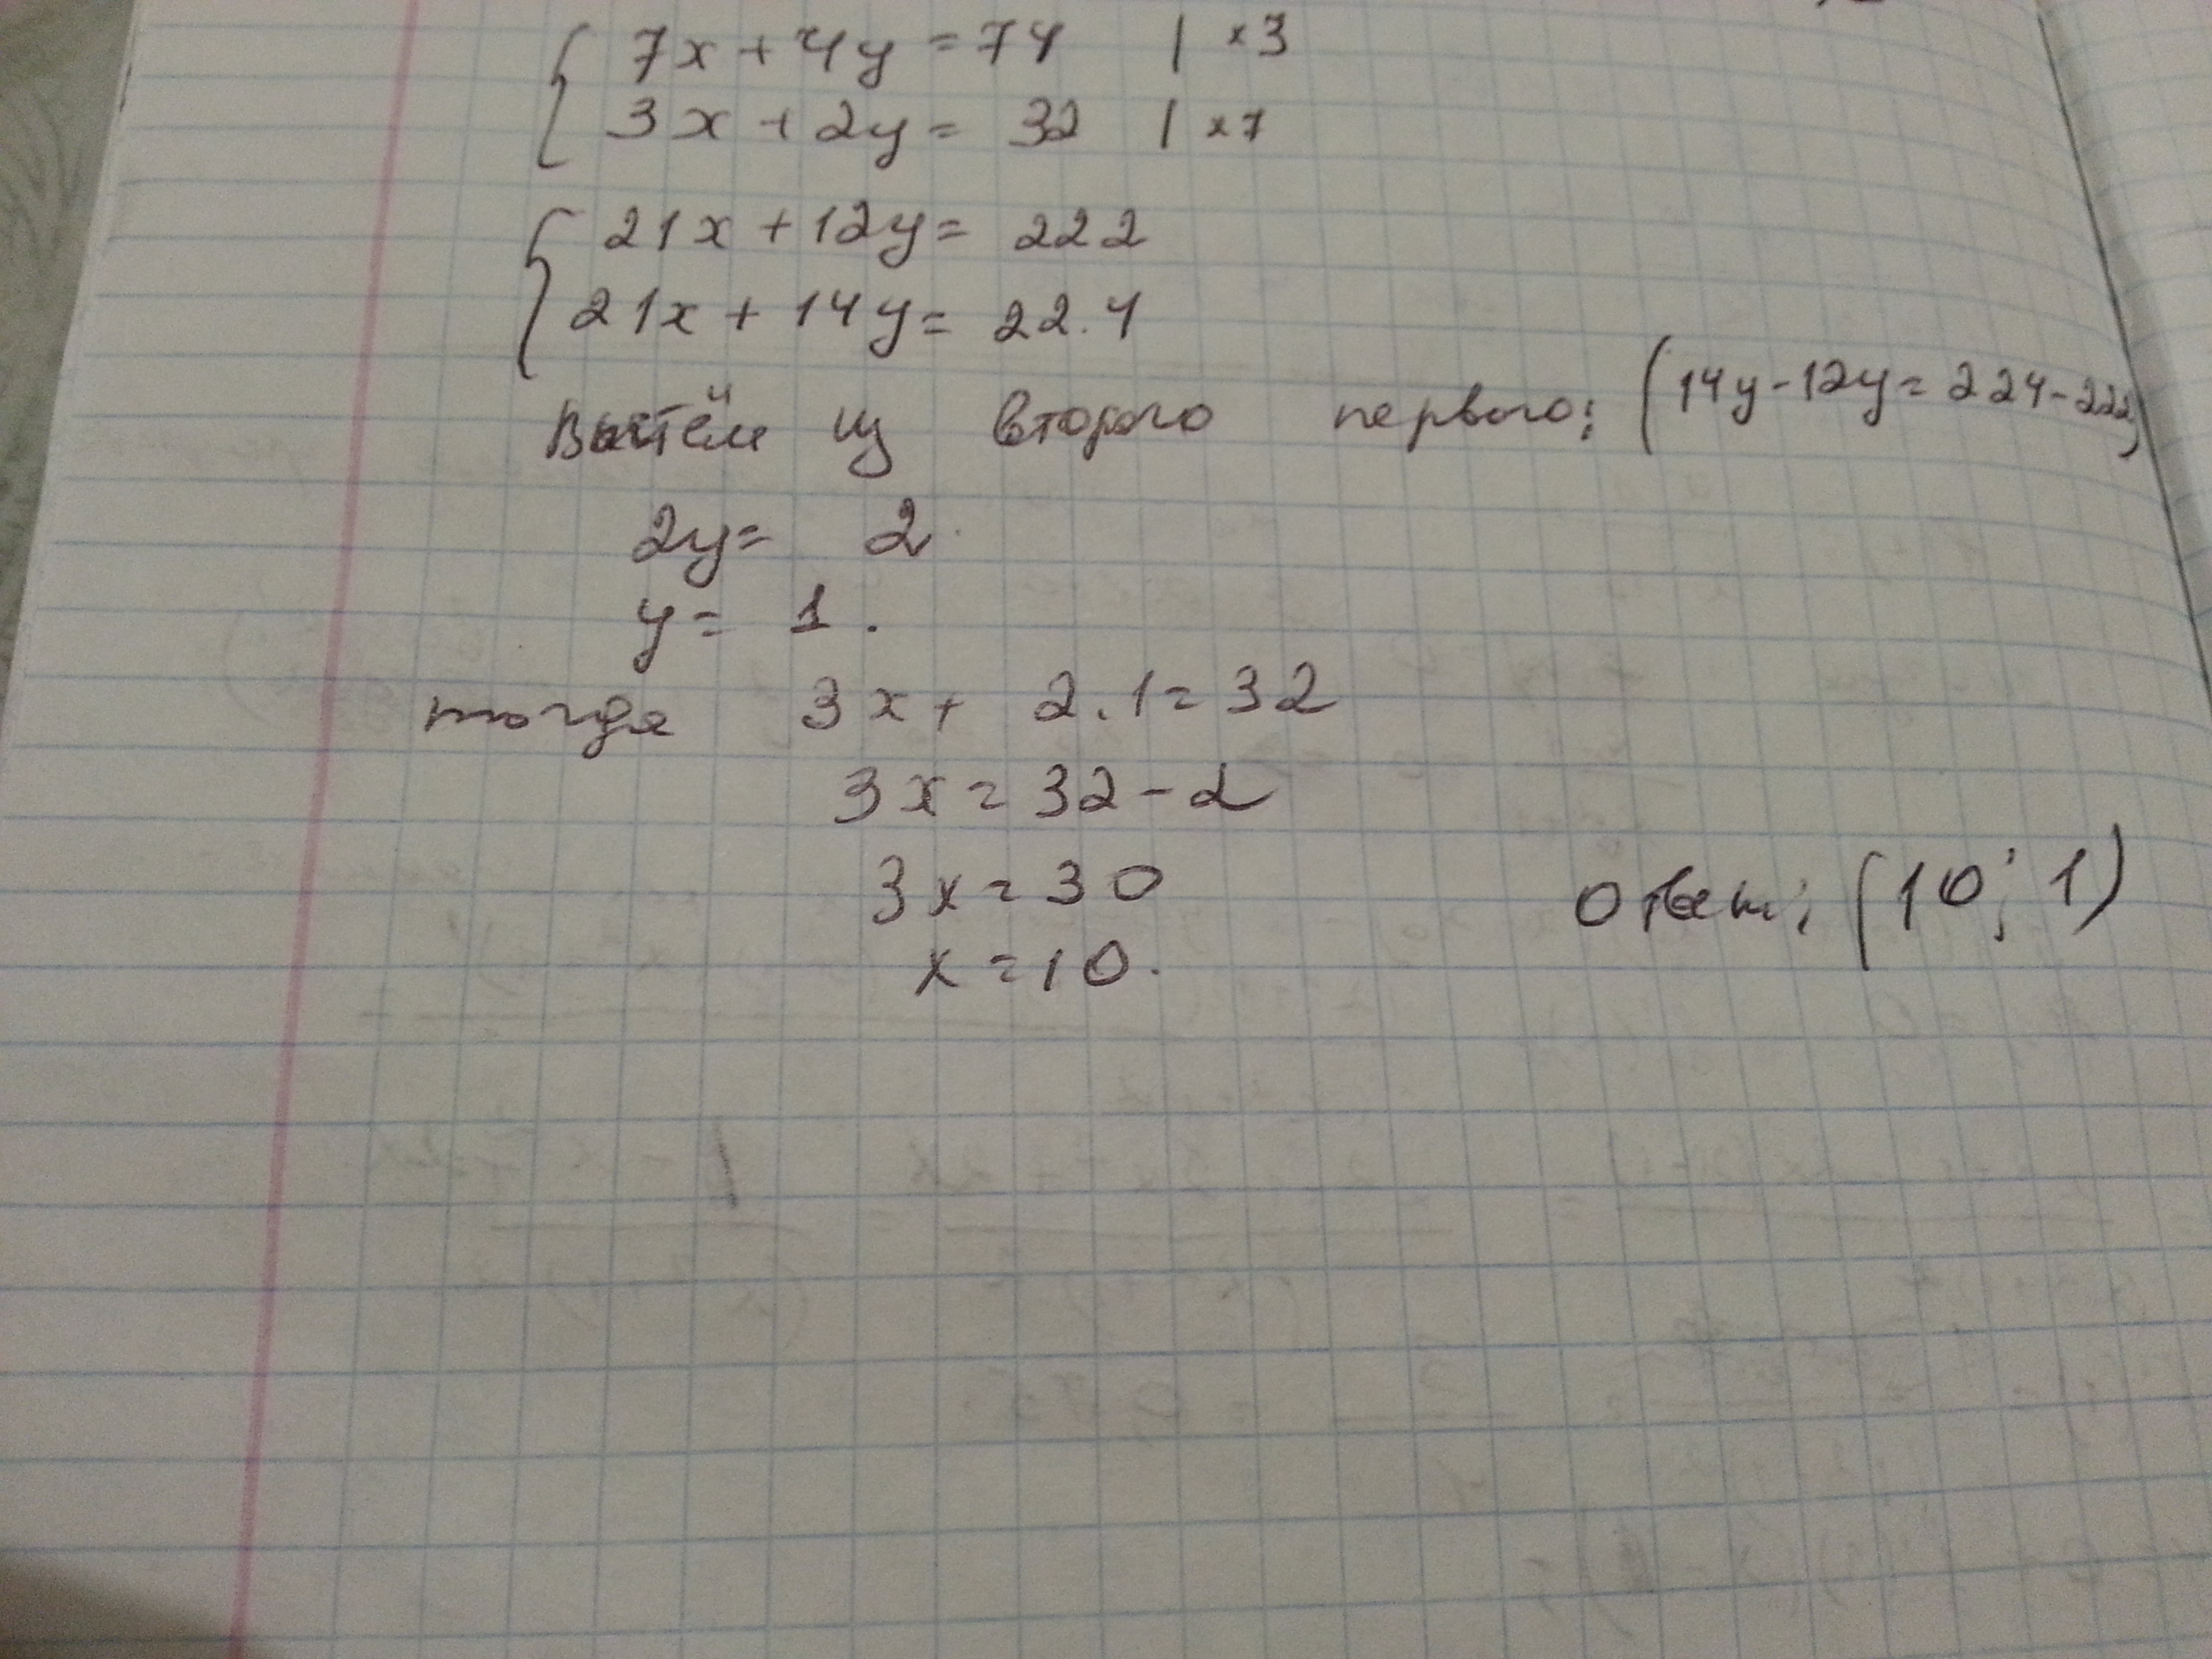 { 7x + 4y = 74 | ×3
3x + 2y = 32 | ×7
{ 21x + 12y = 222
21x + 14y = 22.4
Вычтем из второго первого: (14y - 12y = 224 - 222)
2y = 2.
y = 1.
тогда 3x + 2.1 = 32
3x = 32 - 2
3x = 30
x = 10.
Ответ: (10; 1)